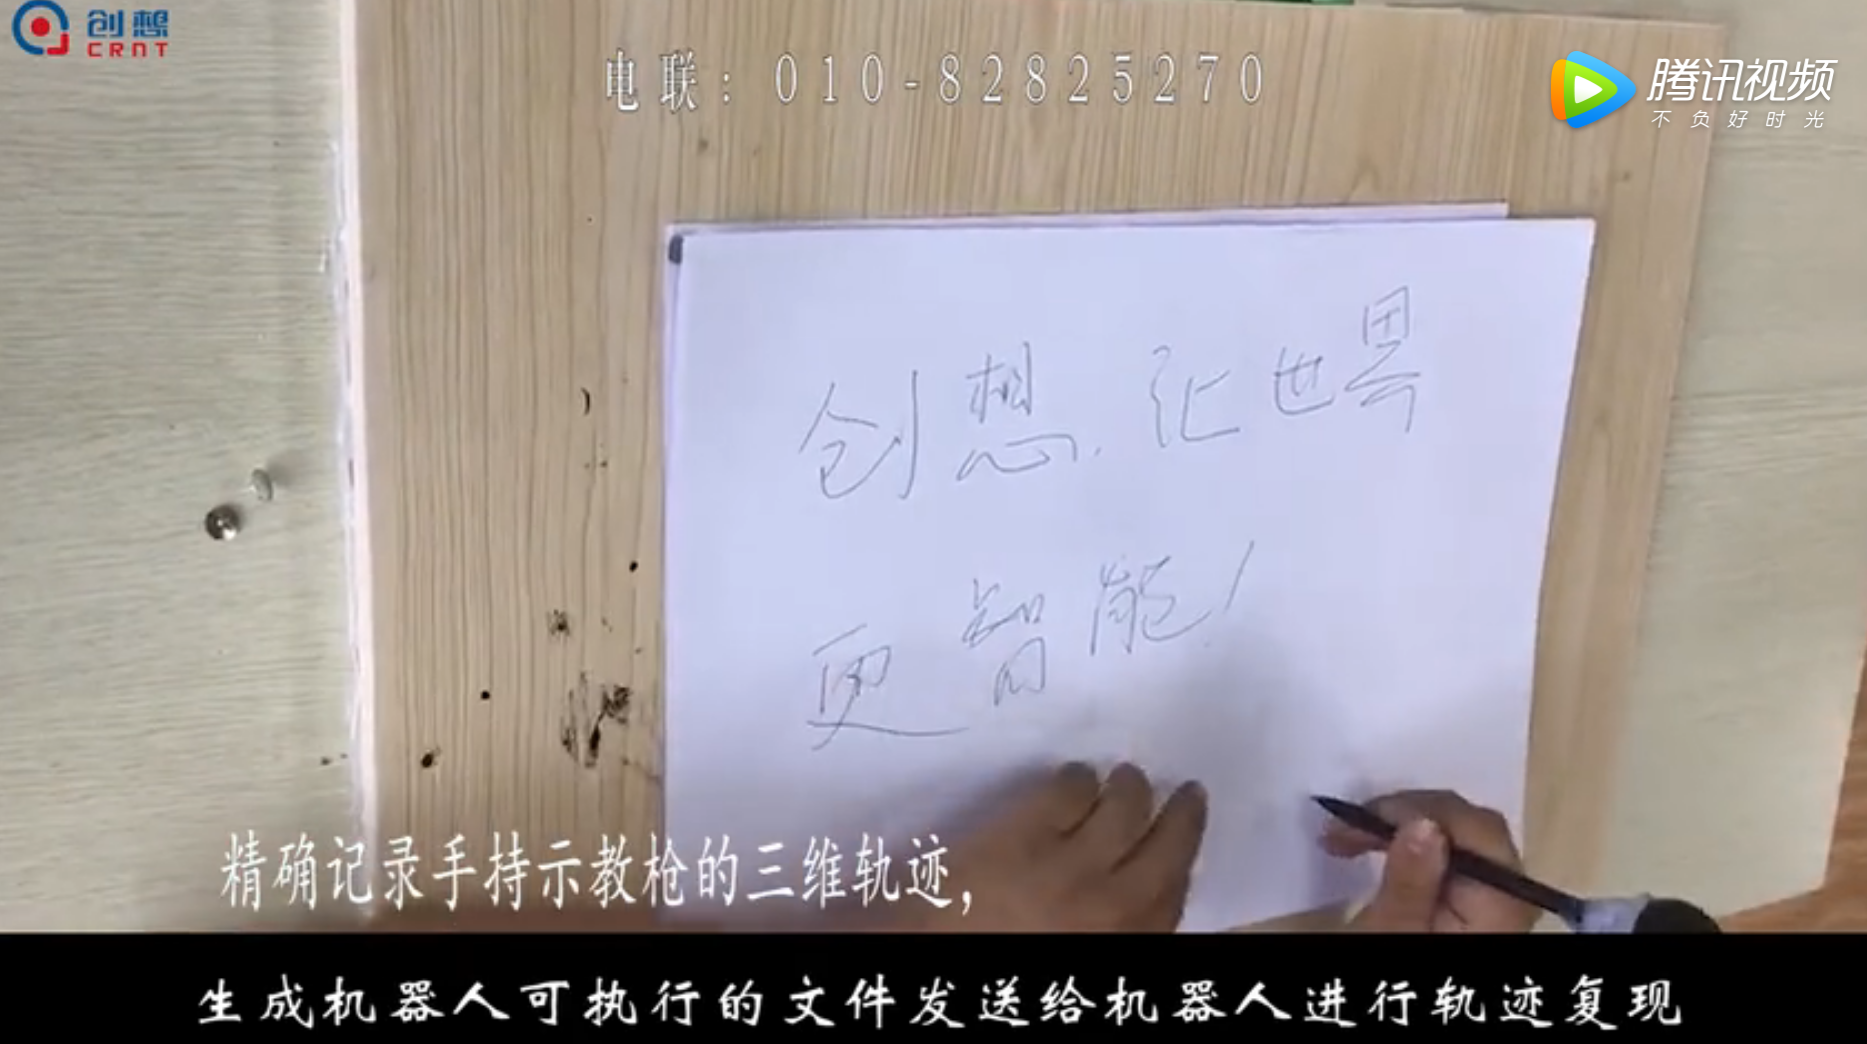 创想
CRNT
电联：010-82825270
腾讯视频
不负好时光
创想,让世界
更智能!
精确记录手持示教枪的三维轨迹,
生成机器人可执行的文件发送给机器人进行轨迹复现